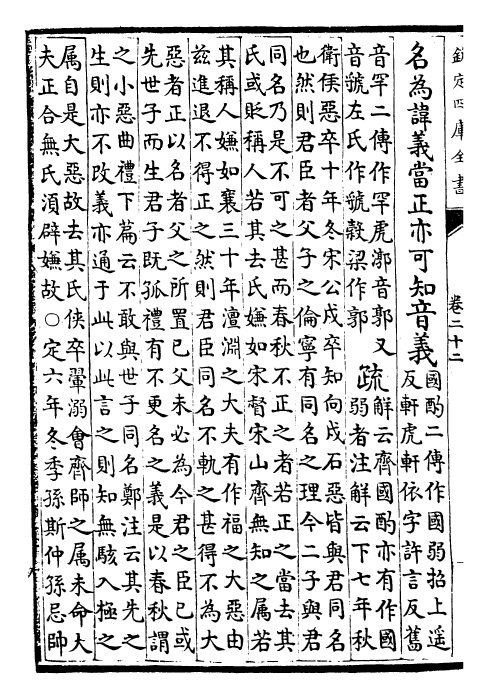 欽定四庫全書
卷二十二
名為諱義當正亦可知音義
國酌二傳作國弱招上遥
反軒虎軒依字許言反舊
音罕二傳作罕虎漷音郭又
音號左氏作虢穀梁作郭
疏
解云齊國酌亦有作國
弱者注解云下七年秋
衛侯惡卒十年冬宋公戍卒知向戍石惡皆與君同名
也然則君臣者父子之倫寧有同名之理今二子與君
同名乃是不可之甚而春秋不正之者若正之當去其
氏或貶稱人若其去氏嫌如宋督宋山齊無知之属若
其稱人嫌如襄三十年澶淵之大夫有作福之大惡由
兹進退不得正之然則君臣同名不軌之甚得不為大
惡者正以名者父之所置已父未必為今君之臣已或
先世子而生君子既孤禮有不更名之義是以春秋謂
之小惡曲禮下篇云不敢與世子同名鄭注云其先之
生則亦不改義亦通于此以此言之則知無駭入極之
属自是大惡故去其氏俠卒翬溺會齊師之属未命大
夫正合無氏湏辟嫌故○定六年冬季孫斯仲孫忌帥